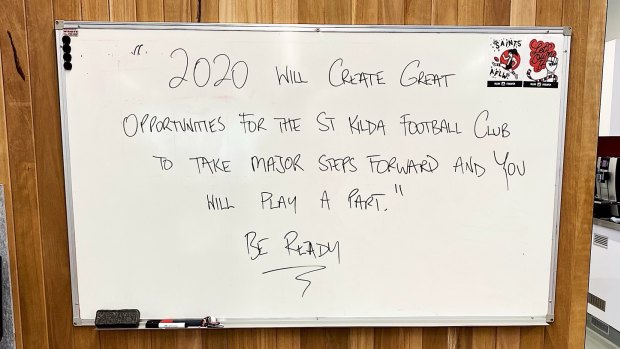 " 2020 WILL CREATE GREAT
OPPORTUNITIES FOR THE ST KILDA FOOTBALL CLUB
TO TAKE MAJOR STEPS FORWARD AND YOU
WILL PLAY A PART."
BE READY
SAINTS